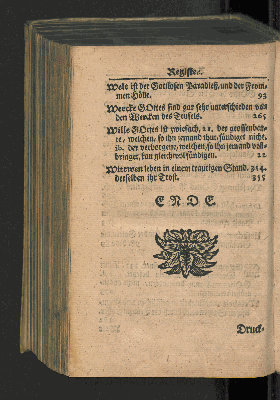 Register.
Welt ist der Gottlosen Paradieß, und der From-
men Hölle. 93
Wercke GOttes sind gar sehr unterschieden von
den Wercken des Teufels. 265
Wille GOttes ist zwiefach, 21. der geoffenbar-
te, welchen, so ihn jemand thut, sündiget nicht,
ib. der verborgene, welchen, so ihn jemand voll-
bringet, kan gleichwol sündigen. 22
Wittwen leben in einem traurigen Stand, 314.
derselben ihr Trost. 315
ENDE.
Druck-